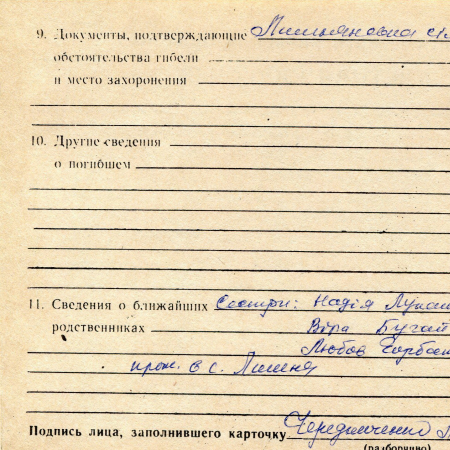 9. Документы, подтверждающие
обстоятельства гибели
и место захоронения
10. Другие сведения
о погибшем
11. Сведения о ближайших Сестри: Надія
родственниках Віра Бугай
Любов
прож. в с.
Подпись лица, заполнившего карточку
(разборчиво)